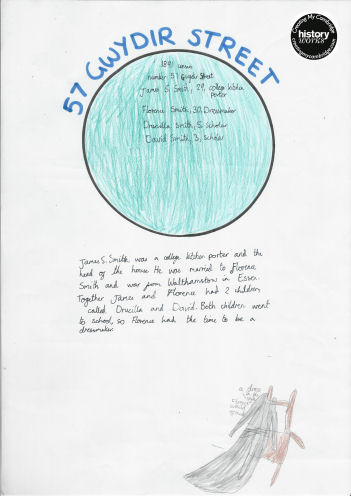 Creating My Cambridge
history
WORKS
creatingmycambridge.com
57 GWYDIR STREET
1891 census
number 57 Gwydir Street
James S Smith, 29, college kitchen
porter
Florence Smith, 30, Dressmaker
Drucilla Smith, 5, Scholar
David Smith, 3, Scholar
James S. Smith was a college kitchen porter and the
head of the house. He was married to Florence
Smith and was from Walthamstow in Essex.
Together James and Florence had 2 children
called Drucilla and David. Both children went
to school, so Florence had the time to be a
dressmaker.
a dress